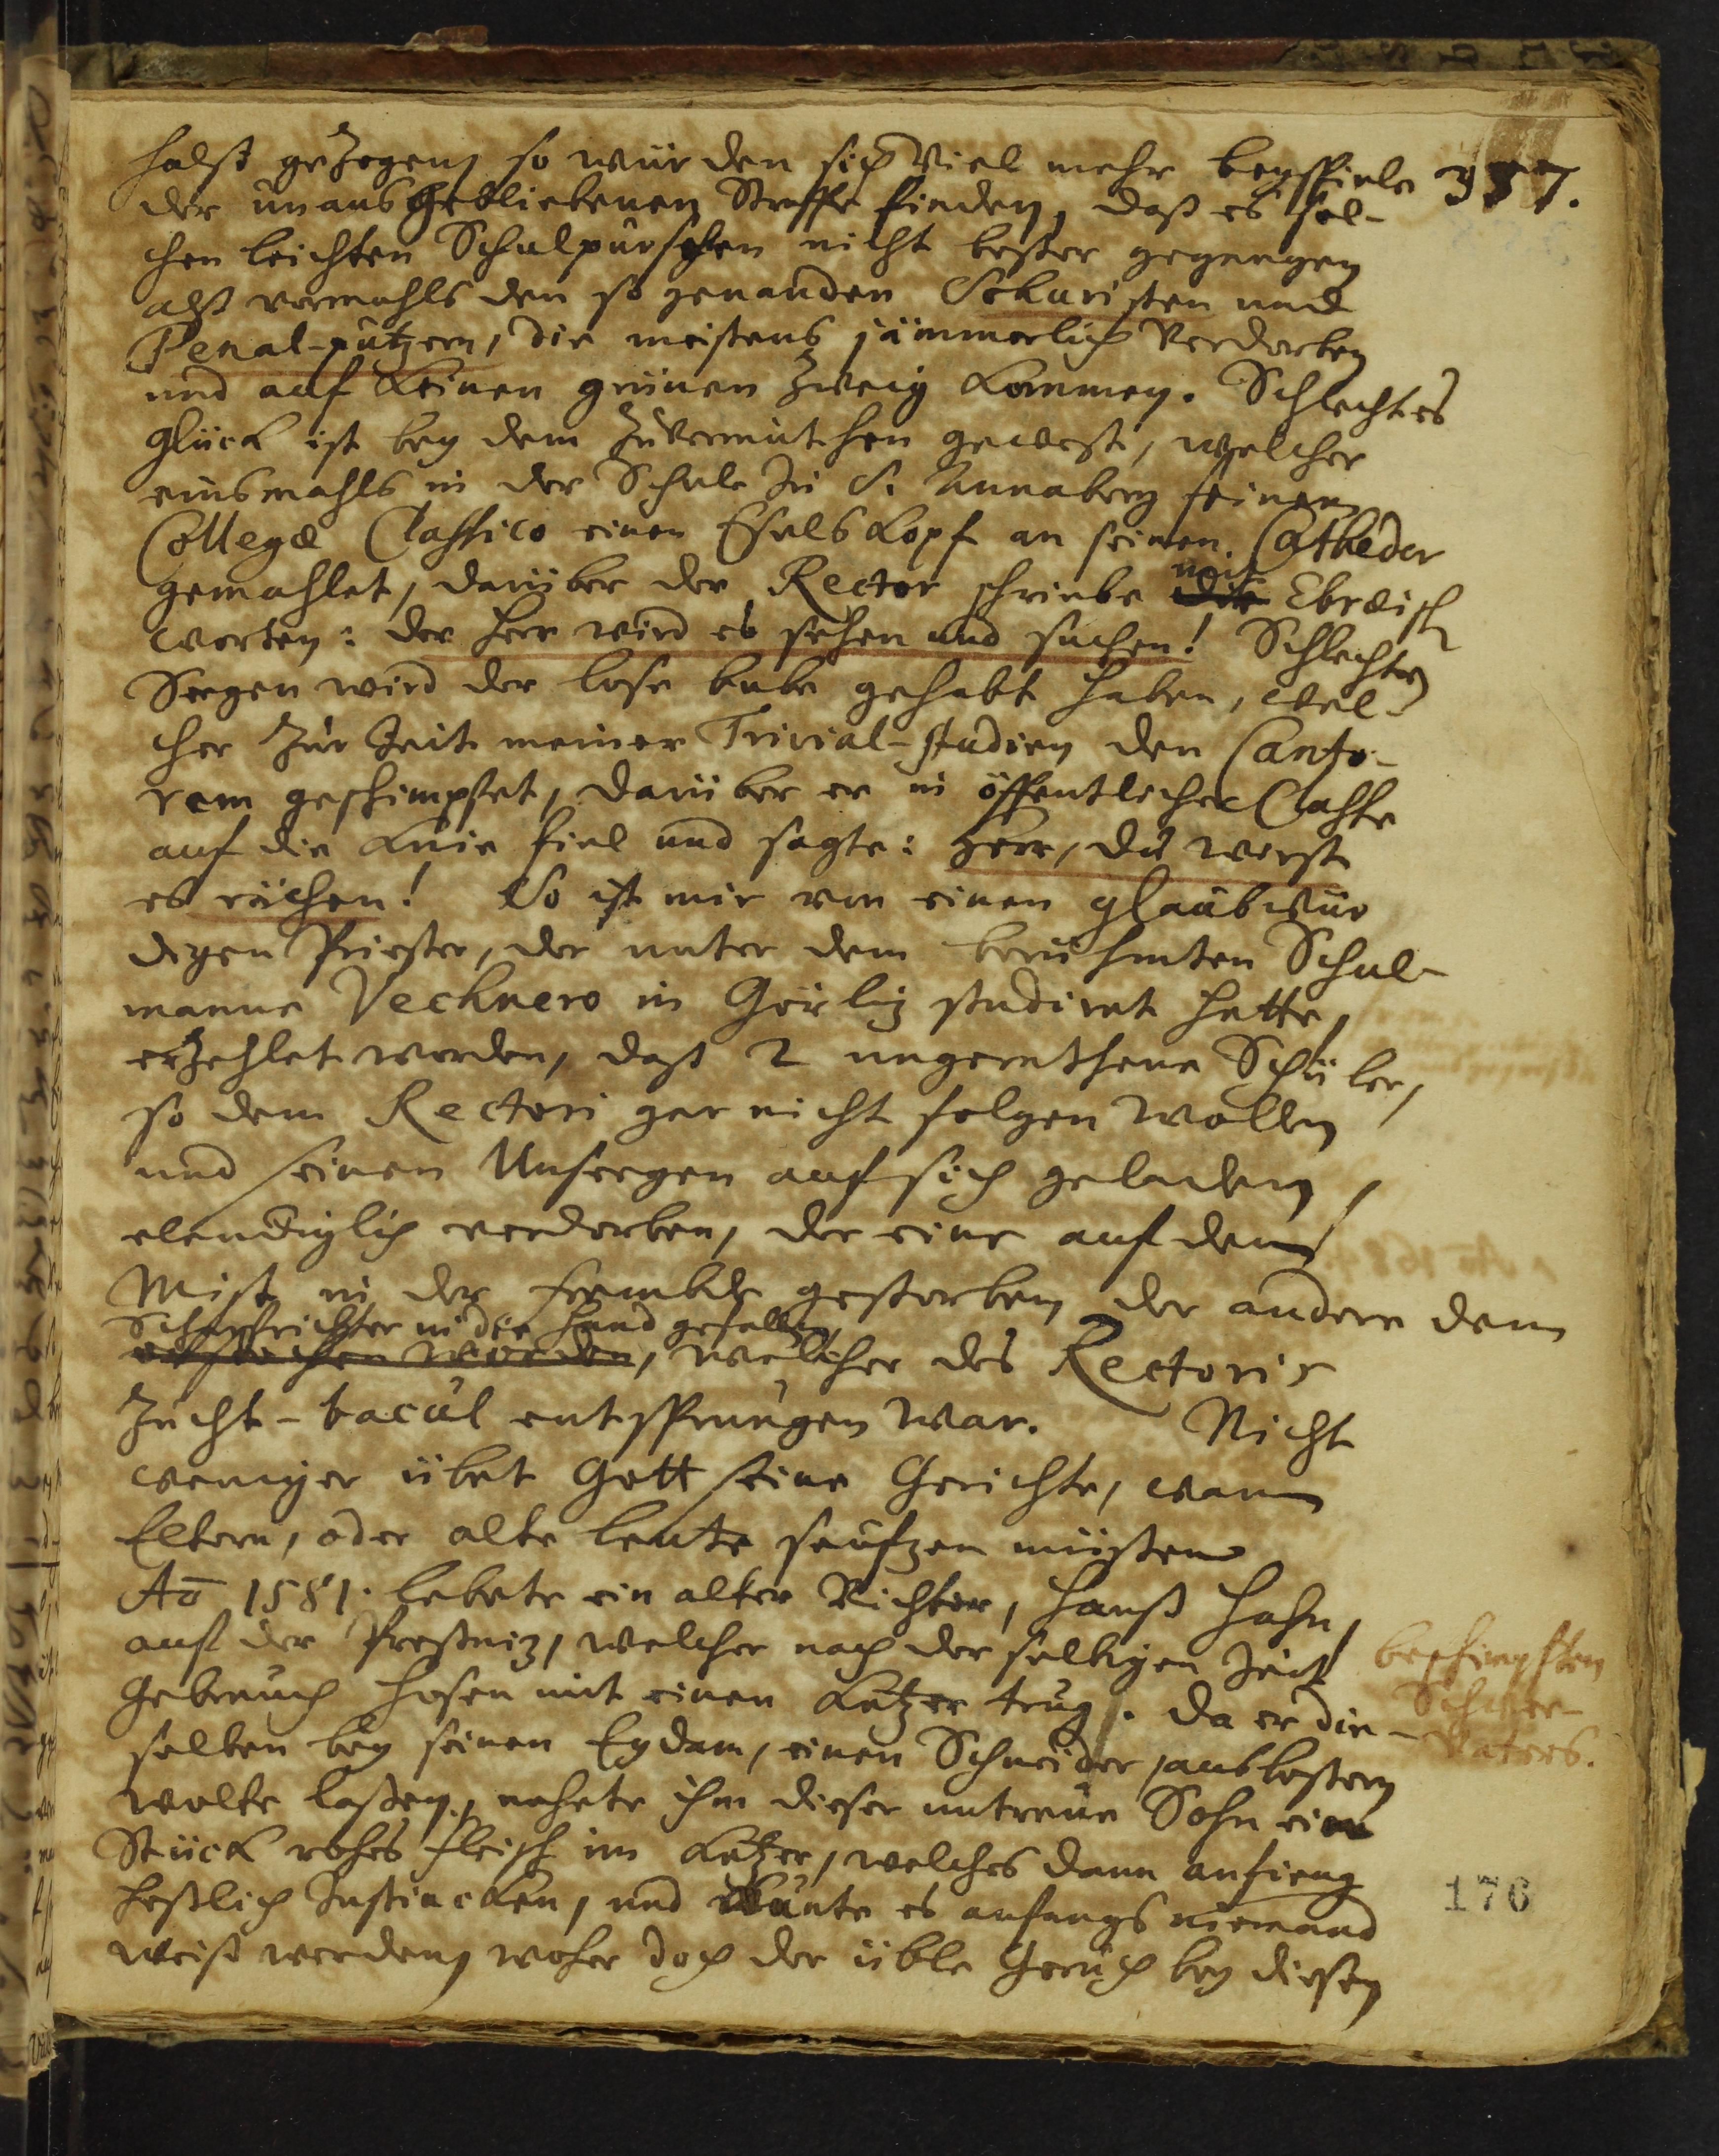 halß gezogen, so würden sich viel mehr beyspiele 337.
der unausgebliebenen Straffe finden, daß es sol-
chen leichten Schulpurschen nicht beßer gegangen
alß vormahls den so genanden Schoristen und
Penal-putzern, die meistens jämmerlich verdorben
und auf keinen grünen Zweig kommen. Schlechtes
Glück ist bey dem zuvermuthen gewest, welcher
einsmahls in der Schule zu S. Annaberg seinen
Collegæ Classico einen Eselskopf an seinen Catheder
gemahlet, darüber der Rector schriebe mit Ebreisch
worten: der Herr wird es sehen und suchen! Schlechten
Seegen wird der lose bube gehabt haben, wel-
cher zur Zeit meiner Trivial-studien den Canto-
rem geschimpfet, darüber er in öffentlicher Classe
auf die Knie fiel und sagte: Herr, du wirst
es rächen! So ist mir von einen glaubwür
digen Priester, der unter dem berühmten Schul-
manne Vechnero in Görliz studiret hatte,
erzehlet worden, daß 2 ungerathene Schüler,
so dem Rectori gar nicht folgen wollen
und seinen Unseegen auf sich geladen,
elendiglich verdorben, der eine auf dem
Mist in der frembde gestorben, der andere dem
Scharfrichter in die Hand gefallen,
worden, welcher des Rectoris
Zucht-bacul entsprungen war. Nicht
weniger übet Gott seine Gerichte, wann
Eltern, oder alte leute seufzen müssen
Ao 1581. lebete ein alter Richter, Hanß Hahn,
auf der Preßniz, welcher nach der selbigen Zeit
Gebrauch Hosen mit einen Latzer trug. Da er die-
selben bey seinen Eydam, einen Schneider, ausbeßern
wolte laßen, nehete ihm dieser untreue Sohn ein
Stück rohes fleisch im Latzer, welches dann anfieng
heßlich zustincken, und kunte es anfangs niemand
weiß werden, woher doch der üble Geruch bey diesen
beschimpften
Schwer-
Vaters.
176